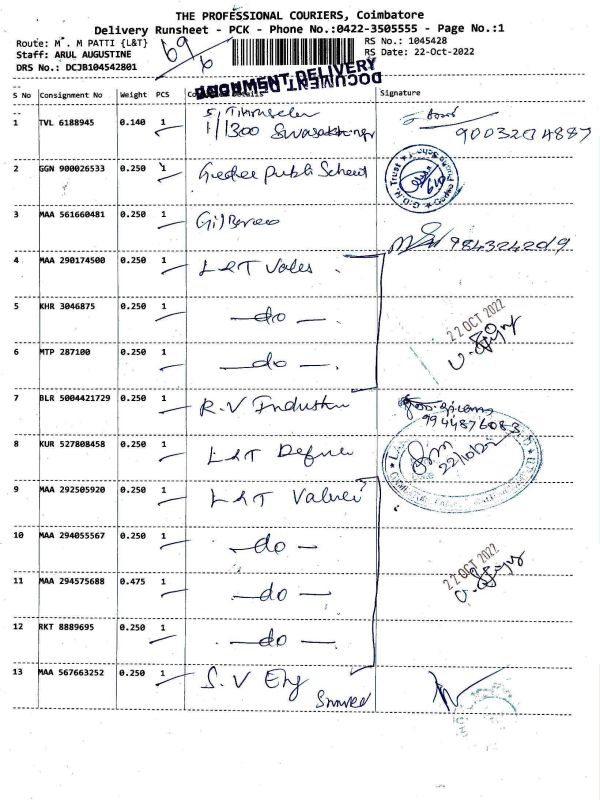 THE PROFESSIONAL COURIERS, Coimbatore
Delivery Runsheet - PCK - Phone No.:0422-3505555 - Page No.:1
Route: M . M PATTI {L&T}
RS No.: 1045428
Staff: ARUL AUGUSTINE
RS Date: 22-Oct-2022
DRS No.: DCJB104542801
69
DOCUMENT DELIVERY
DOCUMENT
S No Consignment No Weight PCS Details Signature
1 TVL 6188945 0.140 1
1/300
2 GGN 900026533 0.250 1
3 MAA 561660481 0.250 1
9843242019
4 MAA 290174500 0.250 1 L&T Valves
5 KHR 3046875 0.250 1 — do —
22 OCT 2022
6 MTP 287100 0.250 1 — do —
7 BLR 5004421729 0.250 1 R.V
9944876083
8 KUR 527808458 0.250 1 L&T Defence
22/10/22
9 MAA 292505920 0.250 1 L&T Valves
10 MAA 294055567 0.250 1 — do —
22 OCT 2022
11 MAA 294575688 0.475 1 — do —
12 RKT 8889695 0.250 1 — do —
13 MAA 567663252 0.250 1 S.V Eng